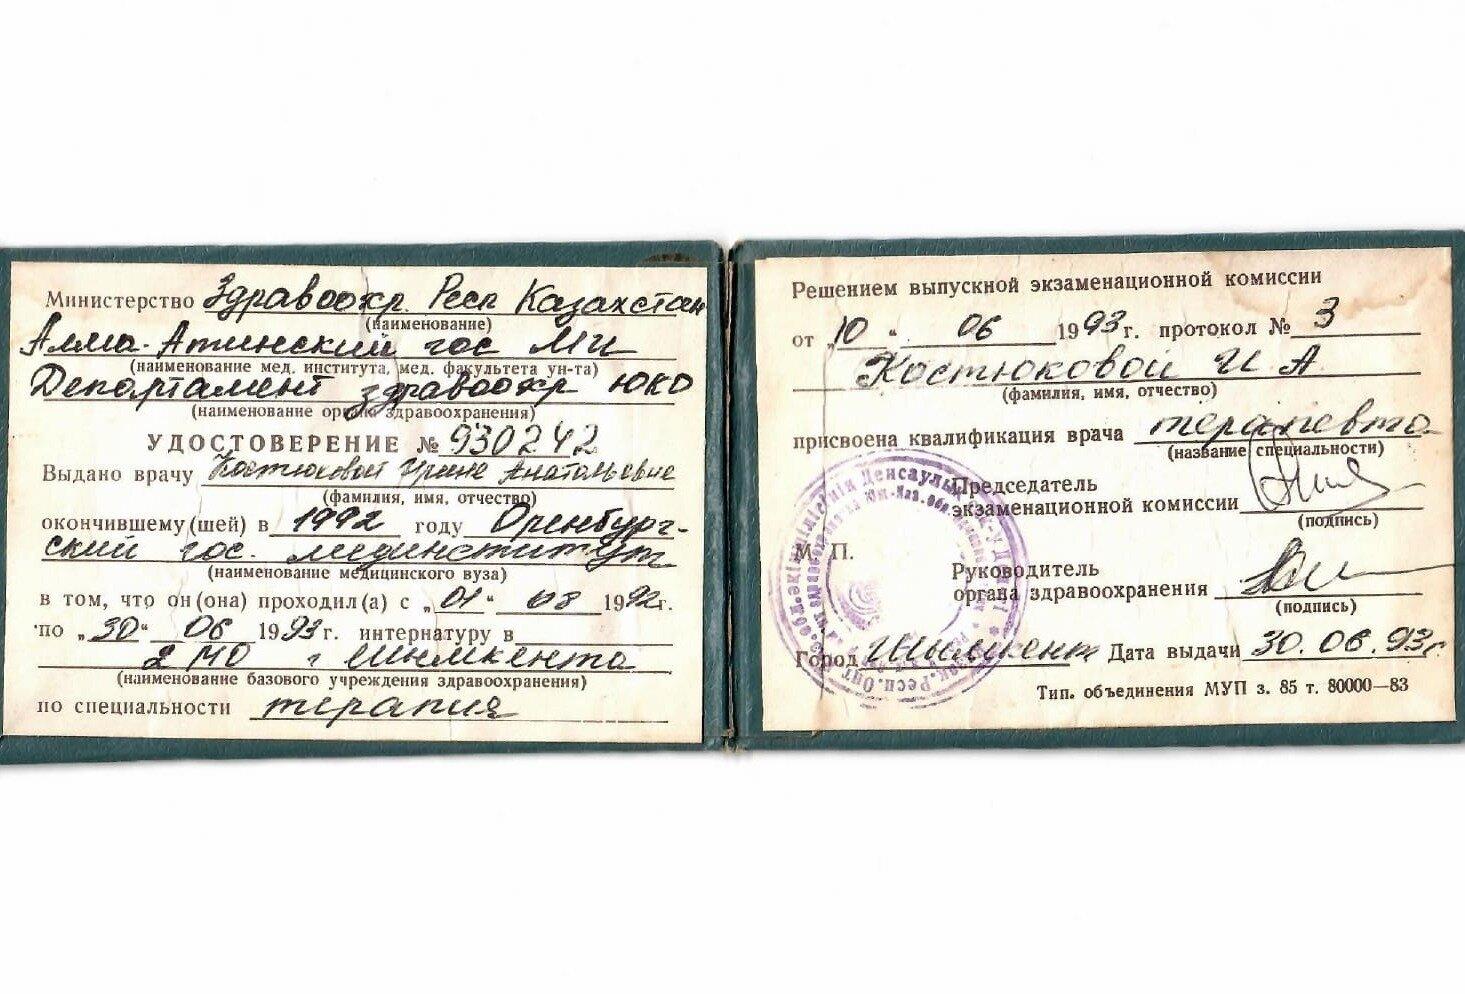 Министерство Здравоохр. Респ Казахстан
(наименование)
Алма-Атинский гос МИ
(наименование мед. института, мед. факультета ун-та)
Департамент здравоохр ЮКО
(наименование органа здравоохранения)
УДОСТОВЕРЕНИЕ № 930242
Выдано врачу Костюковой Ирине Анатольевне
(фамилия, имя, отчество)
окончившему (шей) в 1992 году Оренбург-
ский гос. мединститут
(наименование медицинского вуза)
в том, что он (она) проходил (а) с „01“ 08 1992г.
по „30“ 06 1993г. интернатуру в
2 МО г Шымкента
(наименование базового учреждения здравоохранения)
по специальности терапия
Решением выпускной экзаменационной комиссии
от „10“ 06 1993г. протокол № 3
Костюковой И А
(фамилия, имя, отчество)
присвоена квалификация врача терапевта
(название специальности)
Председатель
экзаменационной комиссии
(подпись)
М. П.
Руководитель
органа здравоохранения
(подпись)
Город Шымкент Дата выдачи 30.06.93г
Тип. объединения МУП з. 85 т. 80000—83